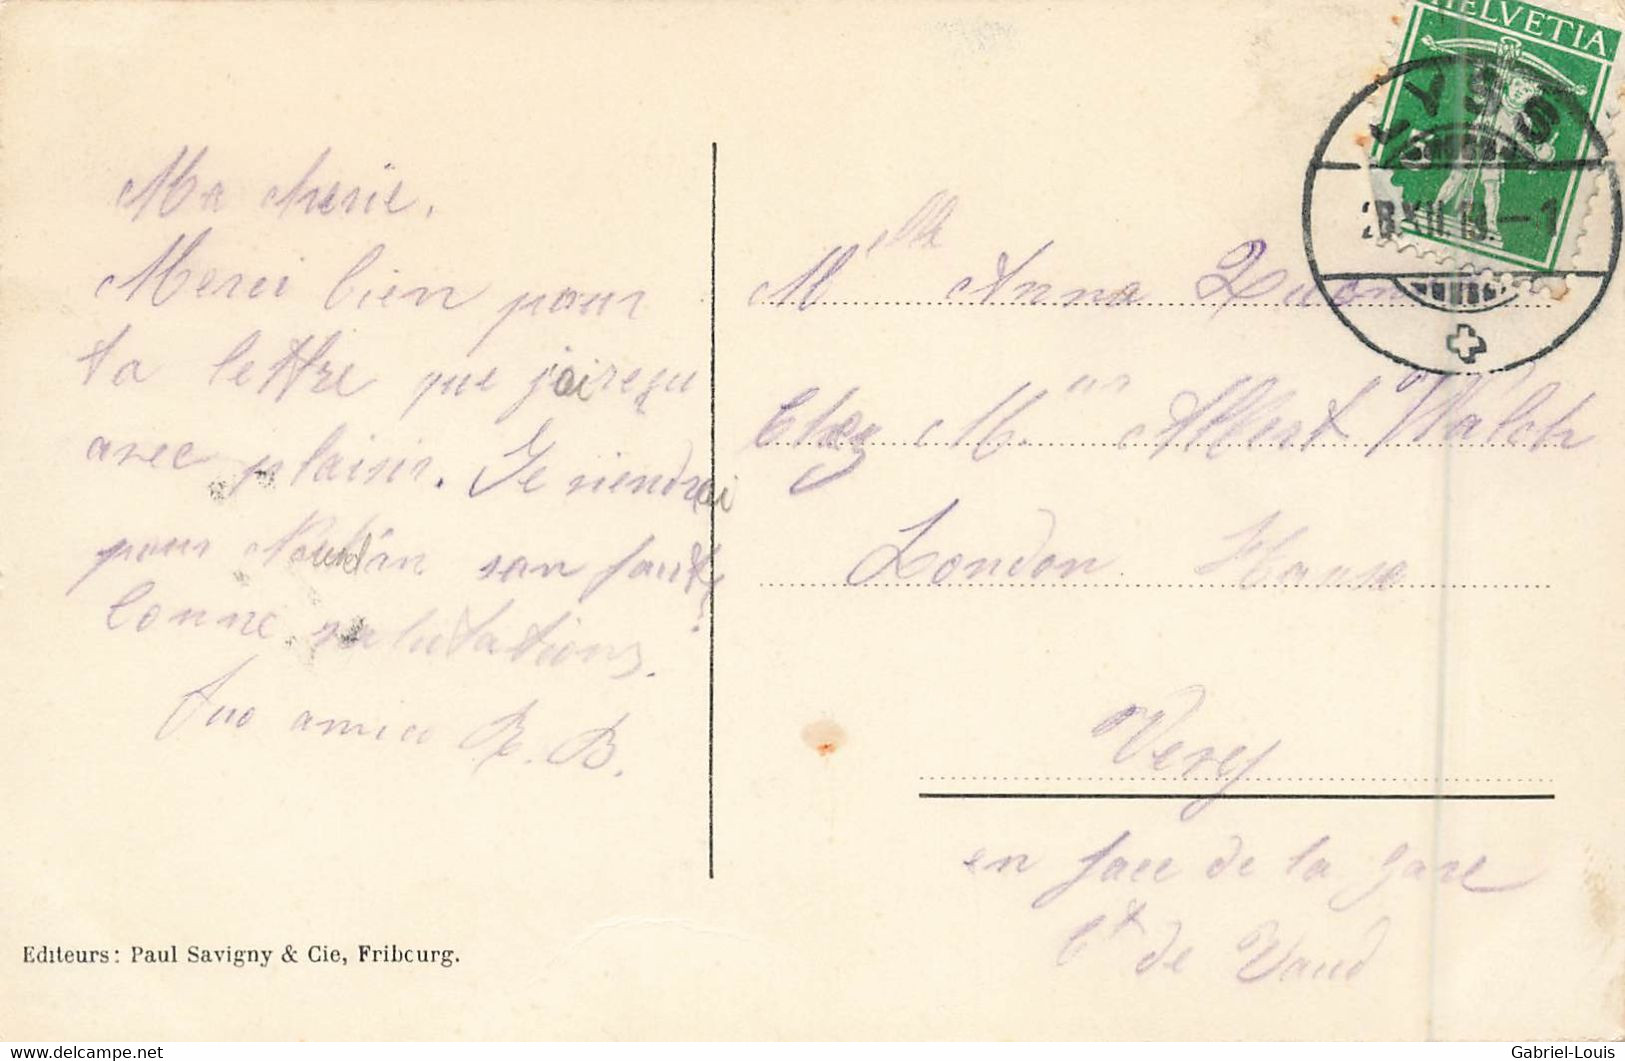 Ma cherie.
Merci bien pour
ta lettre que j'ai reçu
avec plaisir. Je viendrai
pour san faute
bonne salutations.
Tuo amica R. B.
HELVETIA
5
LYSS
XII.13.-1
Mlle Anna
Chez M. Albert Walch
London House
Vevey
en face de la gare
Ct de Vaud
Editeurs: Paul Savigny & Cie, Fribourg.
Gabriel-Louis